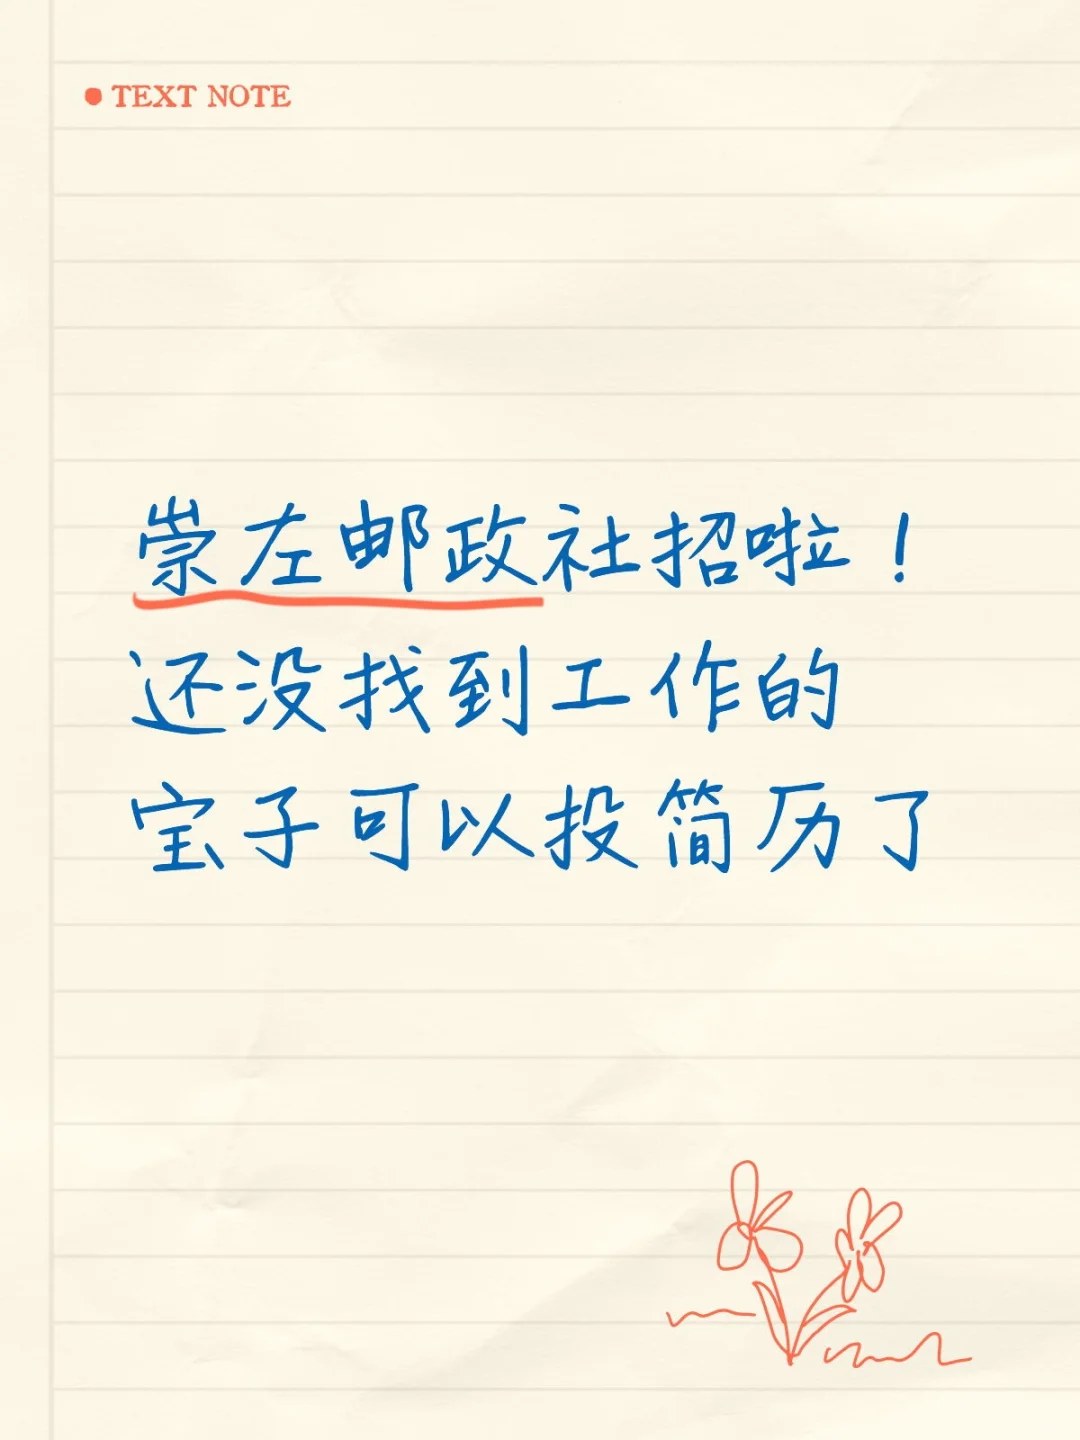 TEXT NOTE
崇左邮政社招啦！
还没找到工作的
宝子可以投简历了